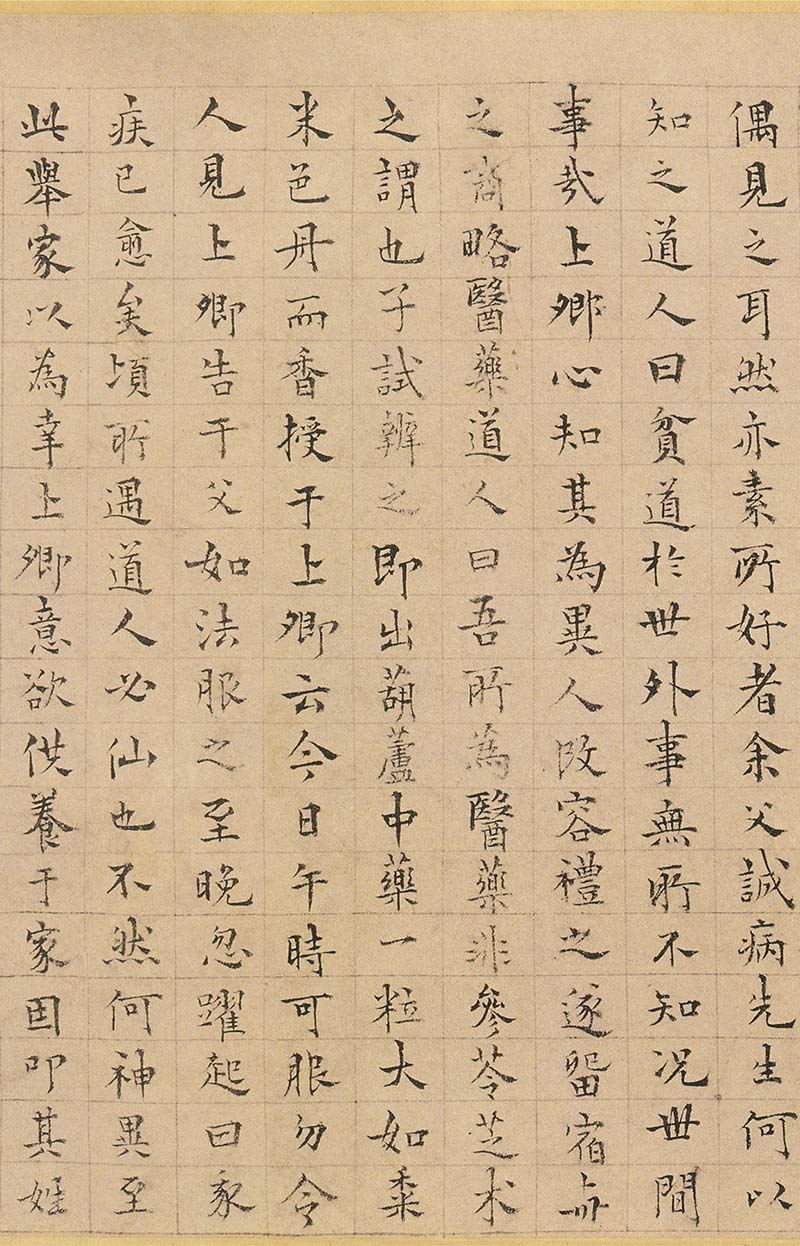 偶見之耳然亦素所好者余父誠病先生何以
知之道人曰貧道於世外事無所不知況世間
事哉上卿心知其為異人改容禮之遂留宿與
之商略醫藥道人曰吾所為醫藥非參苓芝朮
之謂也子試辨之即出葫蘆中藥一粒大如黍
米色丹而香授于上卿云今日午時可服勿令
人見上卿告于父如法服之至晚忽躍起曰家
疾已愈矣頃所遇道人必仙也不然何神異至
此舉家以為幸上卿意欲供養于家因叩其姓